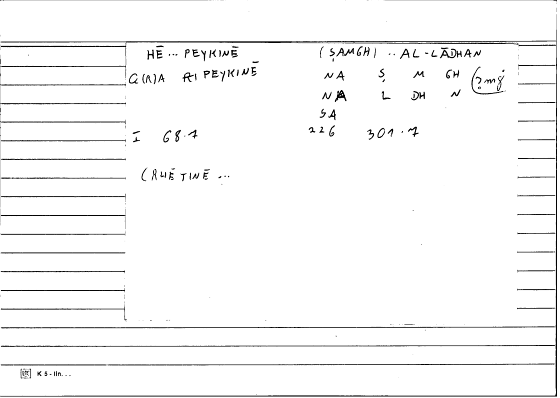 HĒ ... PEYKINĒ
G(R)A PEYKINĒ
I 68.7
(RHĒTINĒ ...
(ṢAMGH) .. AL-LĀDHAN
NA Ṣ M GH (ṣmġ
NA L DH N
SA
226 301.7
K 5 - IIn...